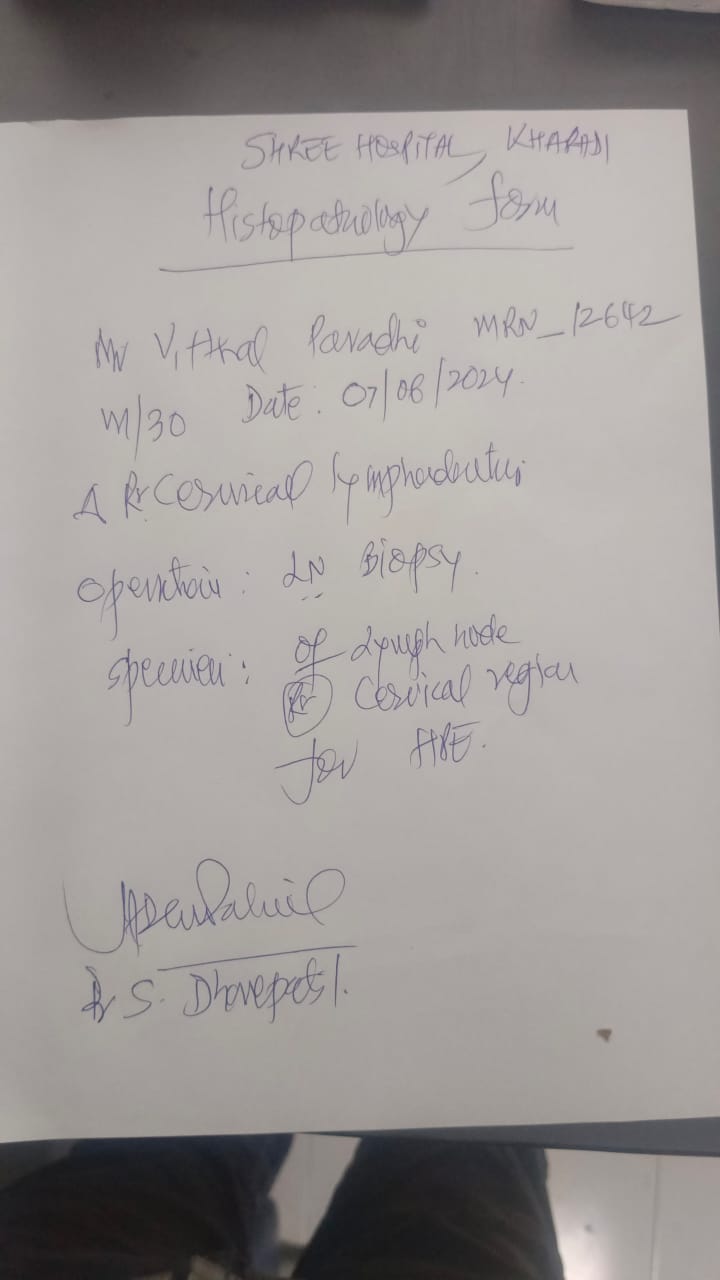 SHREE HOSPITAL, KHARADI
Histopathology form
Mr Vitthal Paradhi MRN_12642
M/30 Date: 07/06/2024.
Δ Rt Cervical lymphadenitis
Operation: LN Biopsy.
Specimen: of Lymph node
Rt Cervical region
for HPE.
Dr S. Dhovepatil.